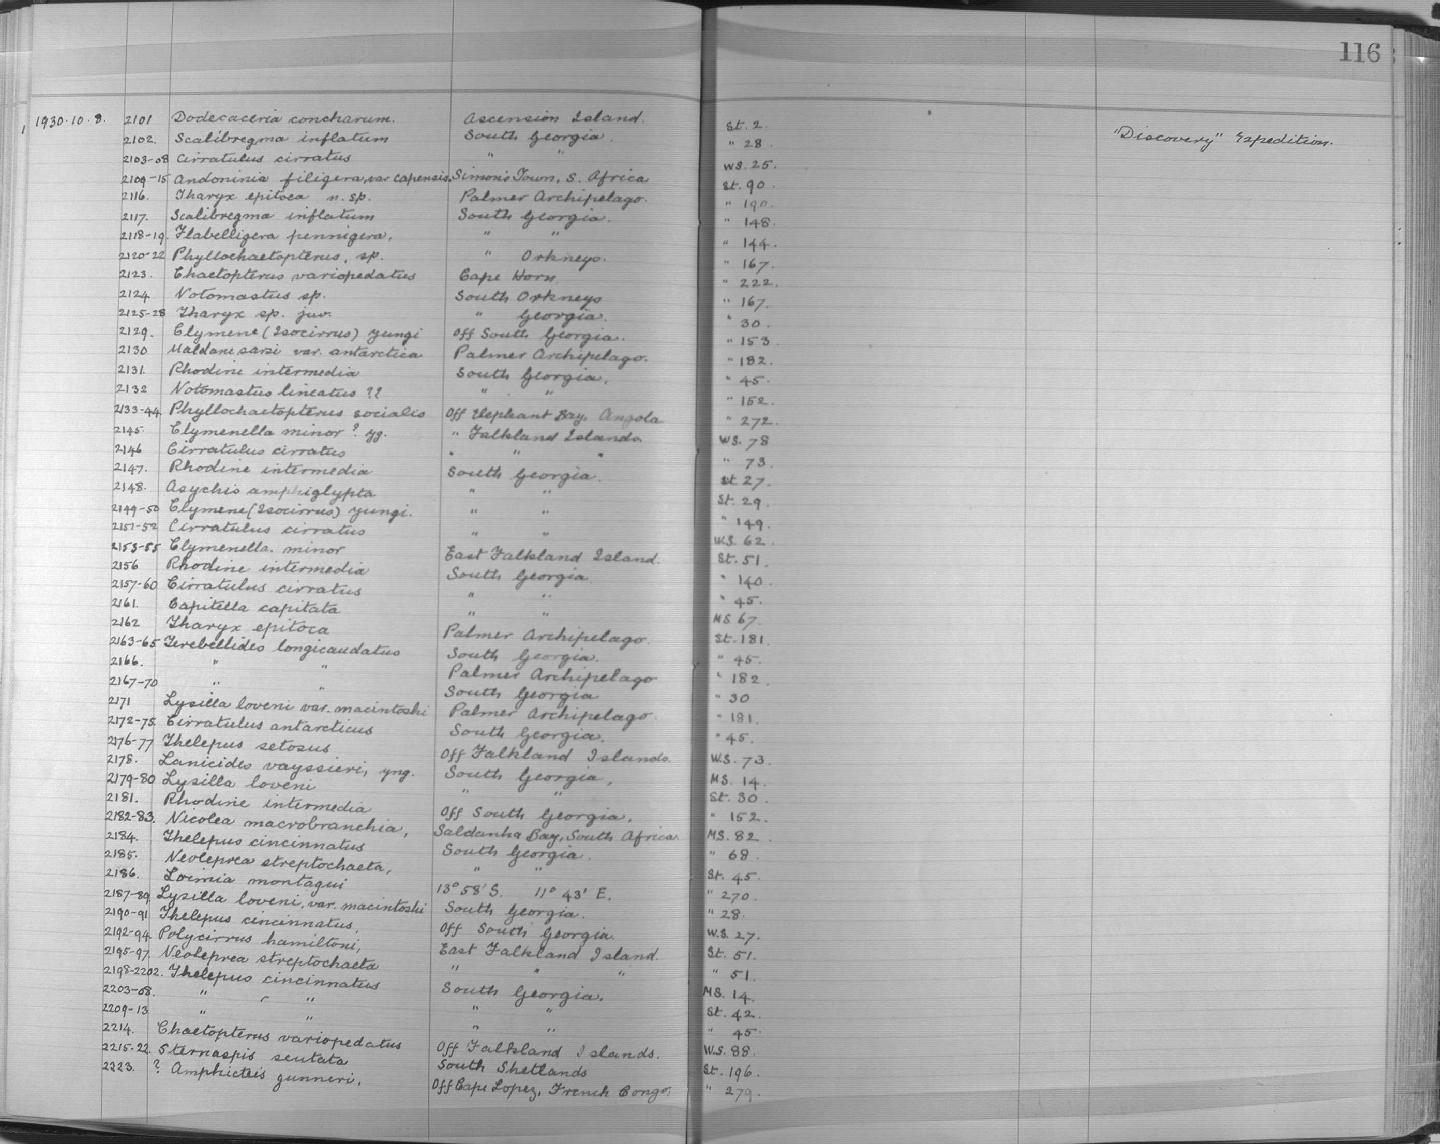 116
1930.10.8. 2101 Dodecaceria concharum. Ascension Island. St. 2. "Discovery" Expedition.
2102. Scalibregma inflatum South Georgia. " 28.
2103-08 Cirratulus cirratus " " W.S. 25.
2109-15 Audouinia filigera, var capensis. Simon's Town, S. Africa St. 90.
2116. Tharyx epitoca n. sp. Palmer Archipelago. " 190.
2117. Scalibregma inflatum South Georgia. " 148.
2118-19. Flabelligera pennigera. " " " 144.
2120-22 Phyllochaetopterus, sp. " Orkneys. " 167.
2123. Chaetopterus variopedatus Cape Horn " 222.
2124. Notomastus sp. South Orkneys " 167.
2125-28 Tharyx sp. juv. " Georgia. " 30.
2129. Clymene (Isocirrus) yungi Off South Georgia. " 153.
2130 Maldane sarsi var. antarctica Palmer Archipelago. " 182.
2131. Rhodine intermedia South Georgia. " 45.
2132 Notomastus lineatus ?? " " " 152.
2133-44 Phyllochaetopterus socialis Off Elephant Bay, Angola " 272.
2145. Clymenella minor? yg. " Falkland Islands W.S. 78
2146 Cirratulus cirratus " " " " 73.
2147. Rhodine intermedia South Georgia. St. 27.
2148. Asychis amphiglypta " " St. 29.
2149-50 Clymene (Isocirrus) yungi. " " " 149.
2151-52 Cirratulus cirratus " " W.S. 62.
2153-55 Clymenella. minor East Falkland Island. St. 51.
2156 Rhodine intermedia South Georgia " 140.
2157-60 Cirratulus cirratus " " " 45.
2161. Capitella capitata " " MS 67.
2162 Tharyx epitoca Palmer Archipelago. St. 181.
2163-65 Terebellides longicaudatus South Georgia. " 45.
2166. " " Palmer Archipelago " 182.
2167-70 " " South Georgia " 30
2171 Lysilla loveni var. macintoshi Palmer Archipelago. " 181.
2172-75 Cirratulus antarcticus South Georgia. " 45.
2176-77 Thelepus setosus Off Falkland Islands. W.S. 73.
2178. Lanicides vayssieri, yng. South Georgia, MS. 14.
2179-80 Lysilla loveni " " St. 30.
2181. Rhodine intermedia Off South Georgia. " 152.
2182-83. Nicolea macrobranchia, Saldanha Bay, South Africa MS. 82.
2184. Thelepus cincinnatus South Georgia. " 68.
2185. Neoleprea streptochaeta, " " St. 45.
2186. Loimia montagui 13° 58' S. 11° 43' E. " 270.
2187-89 Lysilla loveni, var. macintoshi South Georgia. " 28.
2190-91 Thelepus cincinnatus, Off South Georgia. W.S. 27.
2192-94. Polycirrus hamiltoni, East Falkland Island. St. 51.
2195-97. Neoleprea streptochaeta " " " " 51.
2198-2202. Thelepus cincinnatus South Georgia. MS. 14.
2203-08. " " " " St. 42.
2209-13 " " " " " 45.
2214. Chaetopterus variopedatus Off Falkland Islands. W.S. 88.
2215-22 Sternaspis scutata South Shetlands St. 196.
2223. ? Amphicteis gunneri. Off Cape Lopez, French Congo. " 279.